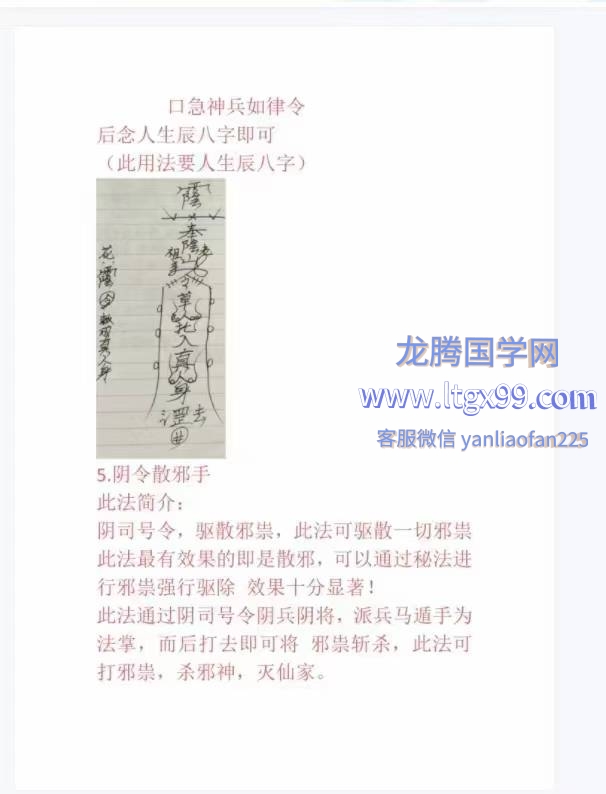 口急神兵如律令
后念人生辰八字即可
（此用法要人生辰八字）
陰
草人
入
真人身
龙腾国学网
www.ltgx99.com
客服微信 yanliaofan225
5.阴令散邪手
此法简介：
阴司号令，驱散邪祟，此法可驱散一切邪祟
此法最有效果的即是散邪，可以通过秘法进
行邪祟强行驱除 效果十分显著！
此法通过阴司号令阴兵阴将，派兵马遁手为
法掌，而后打去即可将 邪祟斩杀，此法可
打邪祟，杀邪神，灭仙家。